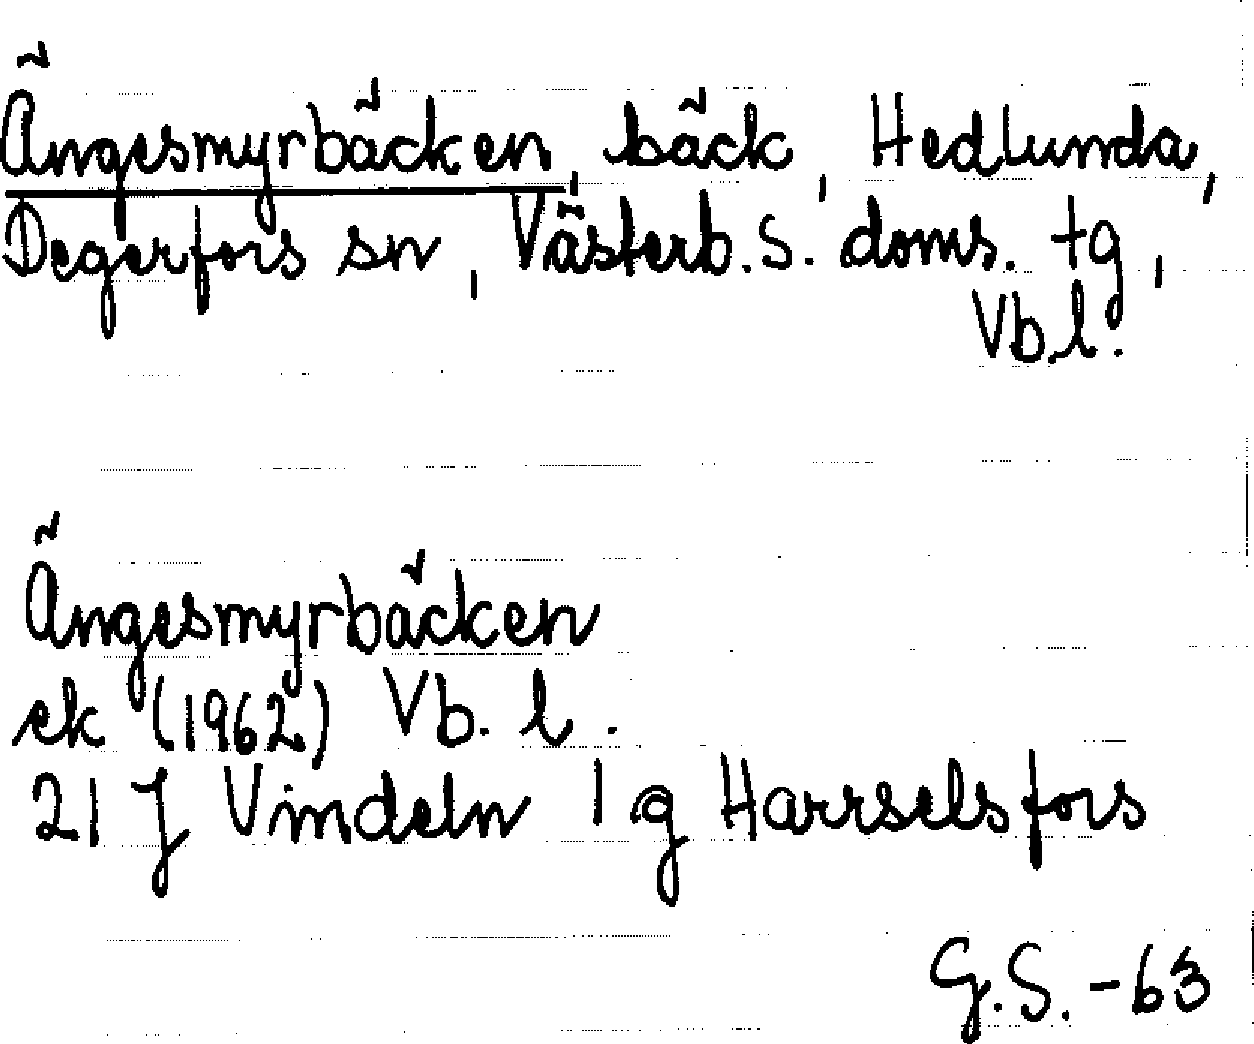 Ängesmyrbäcken, bäck, Hedlunda,
Degerfors sn, Västerb. S. doms. tg,
Vb.l.
Ängesmyrbäcken
ek (1962) Vb. l.
21 J Vindeln 1 g Harrselsfors
G.S. -63